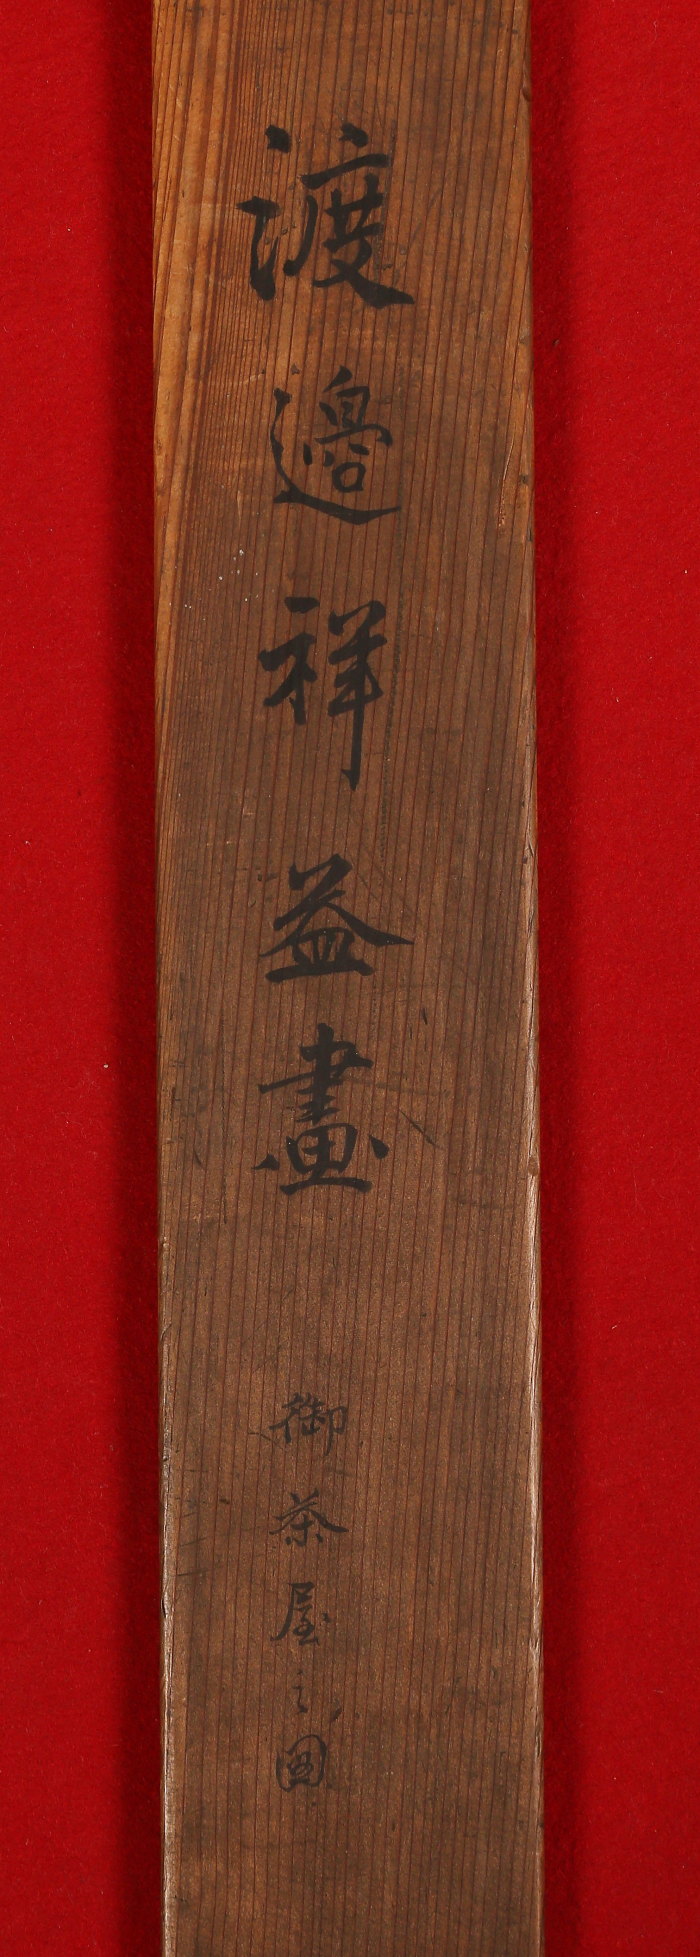 渡邉祥益畫
御茶屋之圖